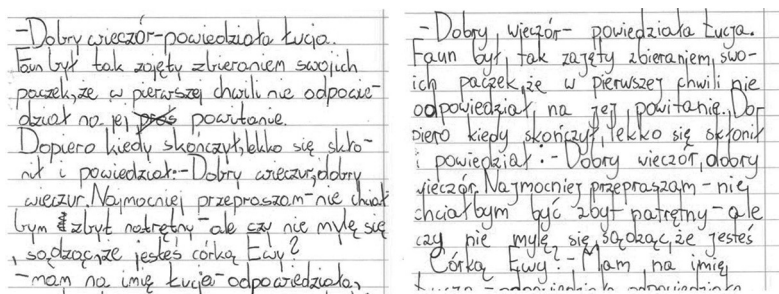 -Dobry wieczór-powiedziała Łucja.
Faun był tak zajęty zbieraniem swoich
paczek, że w pierwszej chwili nie odpowie-
dział na jej powitanie.
Dopiero kiedy skończył, lekko się skło-
nił i powiedział:-Dobry wieczur, dobry
wieczur. Najmocniej przepraszam-nie chciał
bym zbyt natrętny-ale czy nie mylę się
, sądząc, że jesteś córką Ewy?
-mam na imię Łucja-odpowiedziała,
-Dobry wieczór- powiedziała Łucja.
Faun był, tak zajęty zbieraniem, swo-
ich paczek, że w pierwszej chwili nie
odpowiedział na jej powitanie. Do-
piero kiedy skończył, lekko się skłonił
i powiedział:-Dobry wieczór, dobry
wieczór. Najmocniej przepraszam-nie
chciałbym być zbyt natrętny-ale
czy nie mylę się, sądząc, że jesteś
Córką Ewy?-Mam na imię